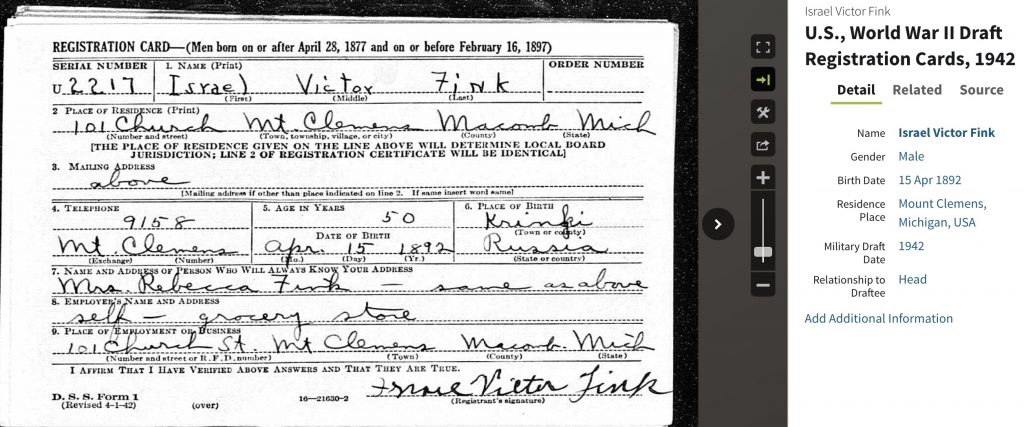 REGISTRATION CARD—(Men born on or after April 28, 1877 and on or before February 16, 1897)
SERIAL NUMBER 1. NAME (Print) ORDER NUMBER
U 2217 Israel Victor Fink
(First) (Middle) (Last)
2 PLACE OF RESIDENCE (Print)
101 Church Mt. Clemens Macomb Mich
(Number and street) (Town, township, village, or city) (County) (State)
[THE PLACE OF RESIDENCE GIVEN ON THE LINE ABOVE WILL DETERMINE LOCAL BOARD
JURISDICTION; LINE 2 OF REGISTRATION CERTIFICATE WILL BE IDENTICAL]
3. MAILING ADDRESS
above
[Mailing address if other than place indicated on line 2. If same insert word same]
4. TELEPHONE 5. AGE IN YEARS 6. PLACE OF BIRTH
9158 50 Krinki
(Town or county)
DATE OF BIRTH
Mt. Clemens Apr. 15 1892 Russia
(Exchange) (Number) (Mo.) (Day) (Yr.) (State or country)
7. NAME AND ADDRESS OF PERSON WHO WILL ALWAYS KNOW YOUR ADDRESS
Mrs. Rebecca Fink — same as above
8. EMPLOYER'S NAME AND ADDRESS
self — grocery store
9. PLACE OF EMPLOYMENT OR BUSINESS
101 Church St. Mt Clemens Macomb. Mich
(Number and street or R. F. D. number) (Town) (County) (State)
I AFFIRM THAT I HAVE VERIFIED ABOVE ANSWERS AND THAT THEY ARE TRUE.
Israel Victor Fink
D. S. S. Form 1
(Revised 4-1-42) (over) 16—21630-2 (Registrant's signature)
Israel Victor Fink
U.S., World War II Draft
Registration Cards, 1942
Detail Related Source
Name Israel Victor Fink
Gender Male
Birth Date 15 Apr 1892
Residence Place Mount Clemens,
Michigan, USA
Military Draft Date 1942
Relationship to Draftee Head
Add Additional Information